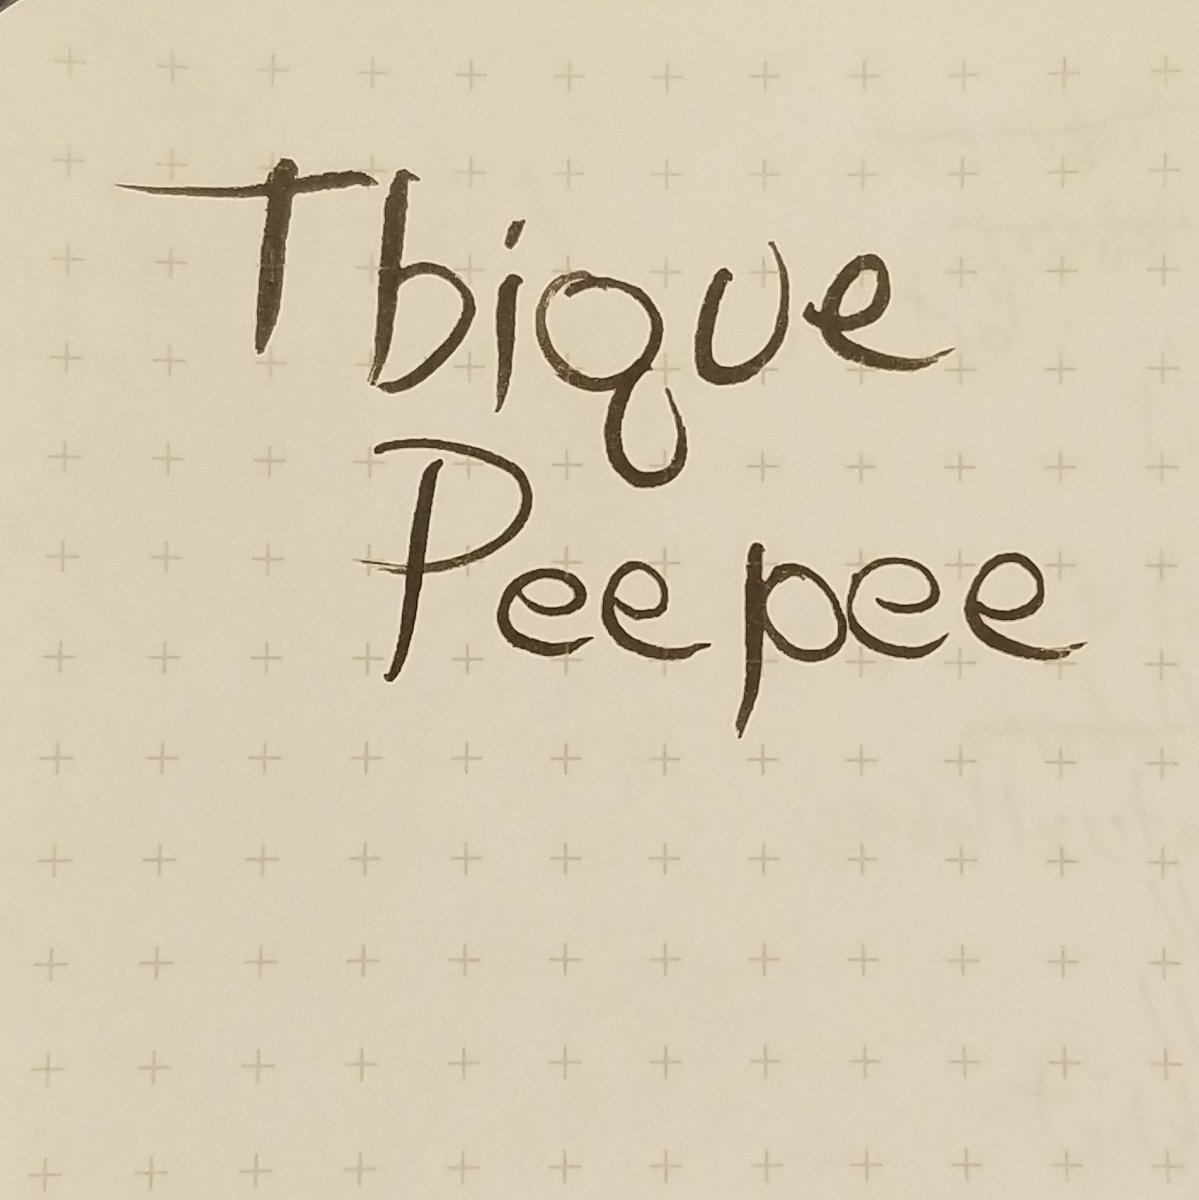 Tbique
Peepee